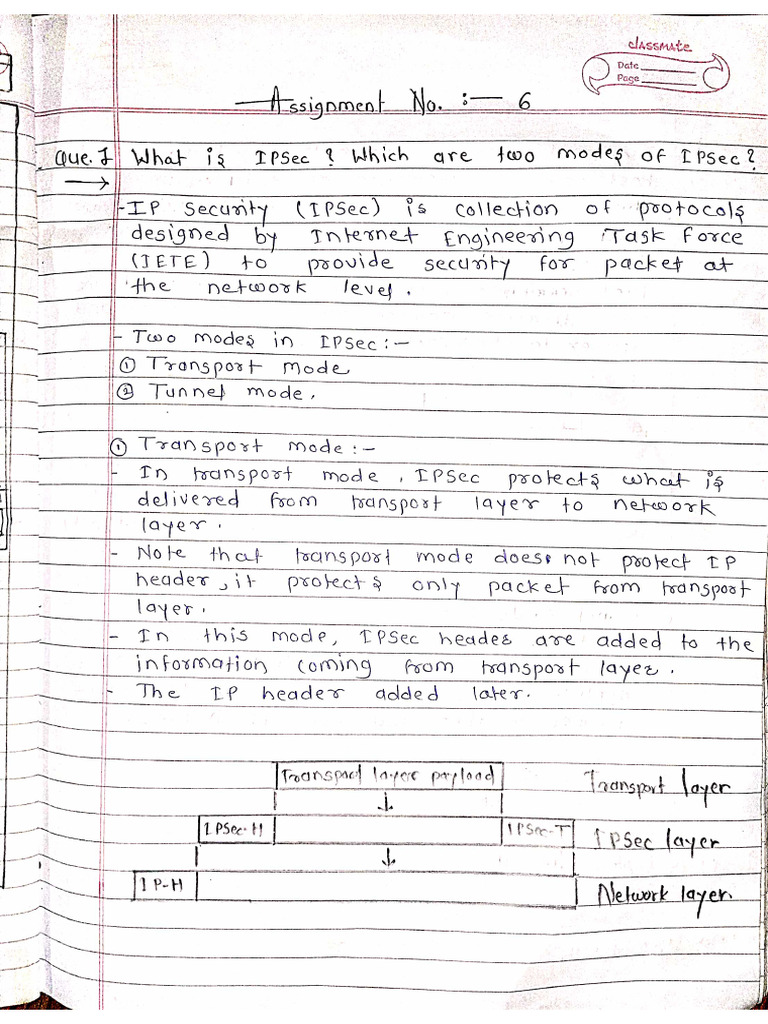 classmate
Date
Page
Assignment No. :- 6
Que. 1 What is IPSec ? Which are two modes of IPSec ?
→
- IP Security (IPSec) is collection of protocols
designed by Internet Engineering Task Force
(IETE) to provide security for packet at
the network level.
- Two modes in IPSec :-
① Transport mode
② Tunnel mode.
① Transport mode :-
- In transport mode , IPSec protects what is
delivered from transport layer to network
layer.
- Note that transport mode does not protect IP
header, it protects only packet from transport
layer.
- In this mode, IPSec header are added to the
information coming from transport layer.
- The IP header added later.
Transport layer payload Transport layer
IPSec-H IPSec-T IPSec layer
IP-H Network layer.